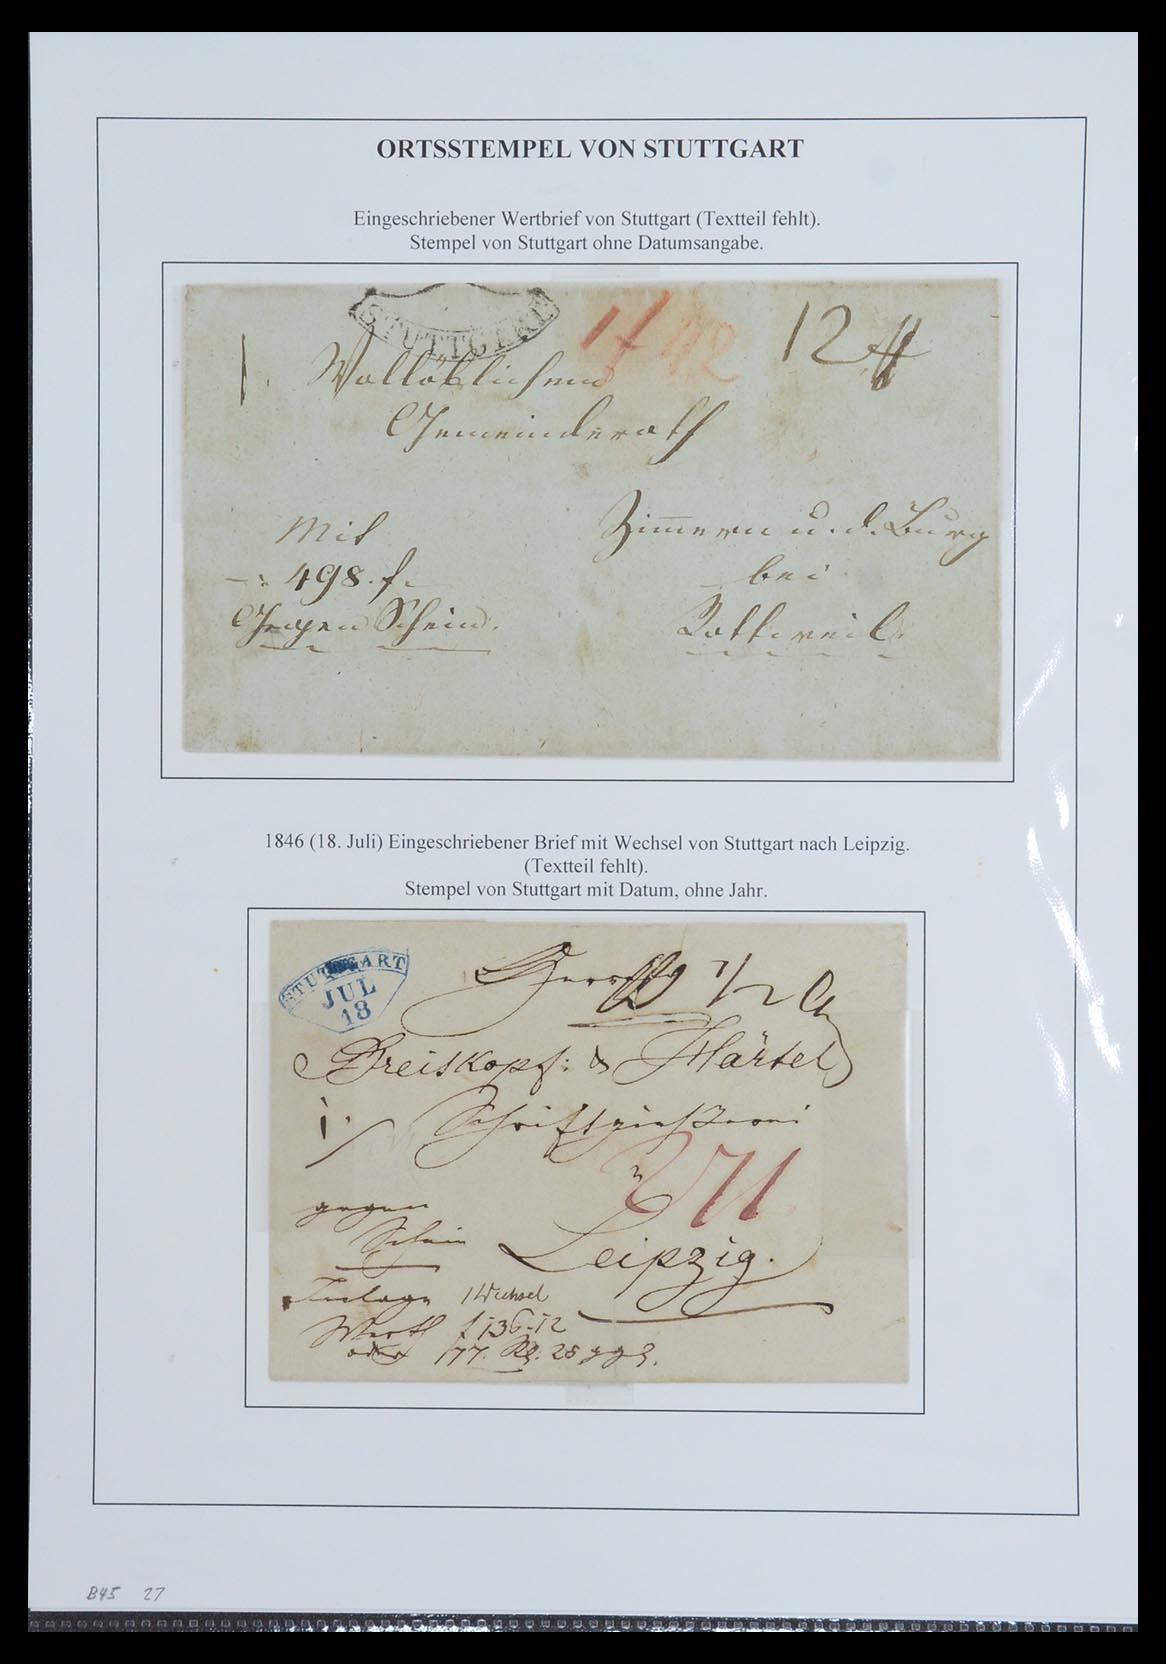 ORTSSTEMPEL VON STUTTGART
Eingeschriebener Wertbrief von Stuttgart (Textteil fehlt).
Stempel von Stuttgart ohne Datumsangabe.
STUTTGART
1 f 42
12
1. Wollöblichem
Gemeinderath
Mit
498. f.
Gegen Schein.
Zimmern u. d. Burg
bei
Rottweil.
1846 (18. Juli) Eingeschriebener Brief mit Wechsel von Stuttgart nach Leipzig.
(Textteil fehlt).
Stempel von Stuttgart mit Datum, ohne Jahr.
STUTTGART
JUL
18
Herren
Breiskopf: & Härtel
Schriftgießerei
gegen
Schein
Leipzig.
Einlage 1 Wechsel
Werth f 136-12
oder 77. Rl. 28 ggl.
B45 27